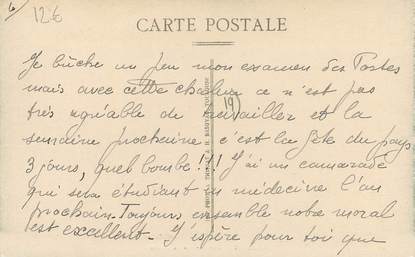 6
126
CARTE POSTALE
Je bûche un peu mon examen des Postes
mais avec cette chaleur ce n'est pas
très agréable de travailler et la
19)
semaine prochaine c'est la fête du pays
3 jours, quel bombe!!! J'ai un camarade
qui sera étudiant en médecine l'an
prochain. Toujours ensemble notre moral
est excellent. J'espère pour toi que